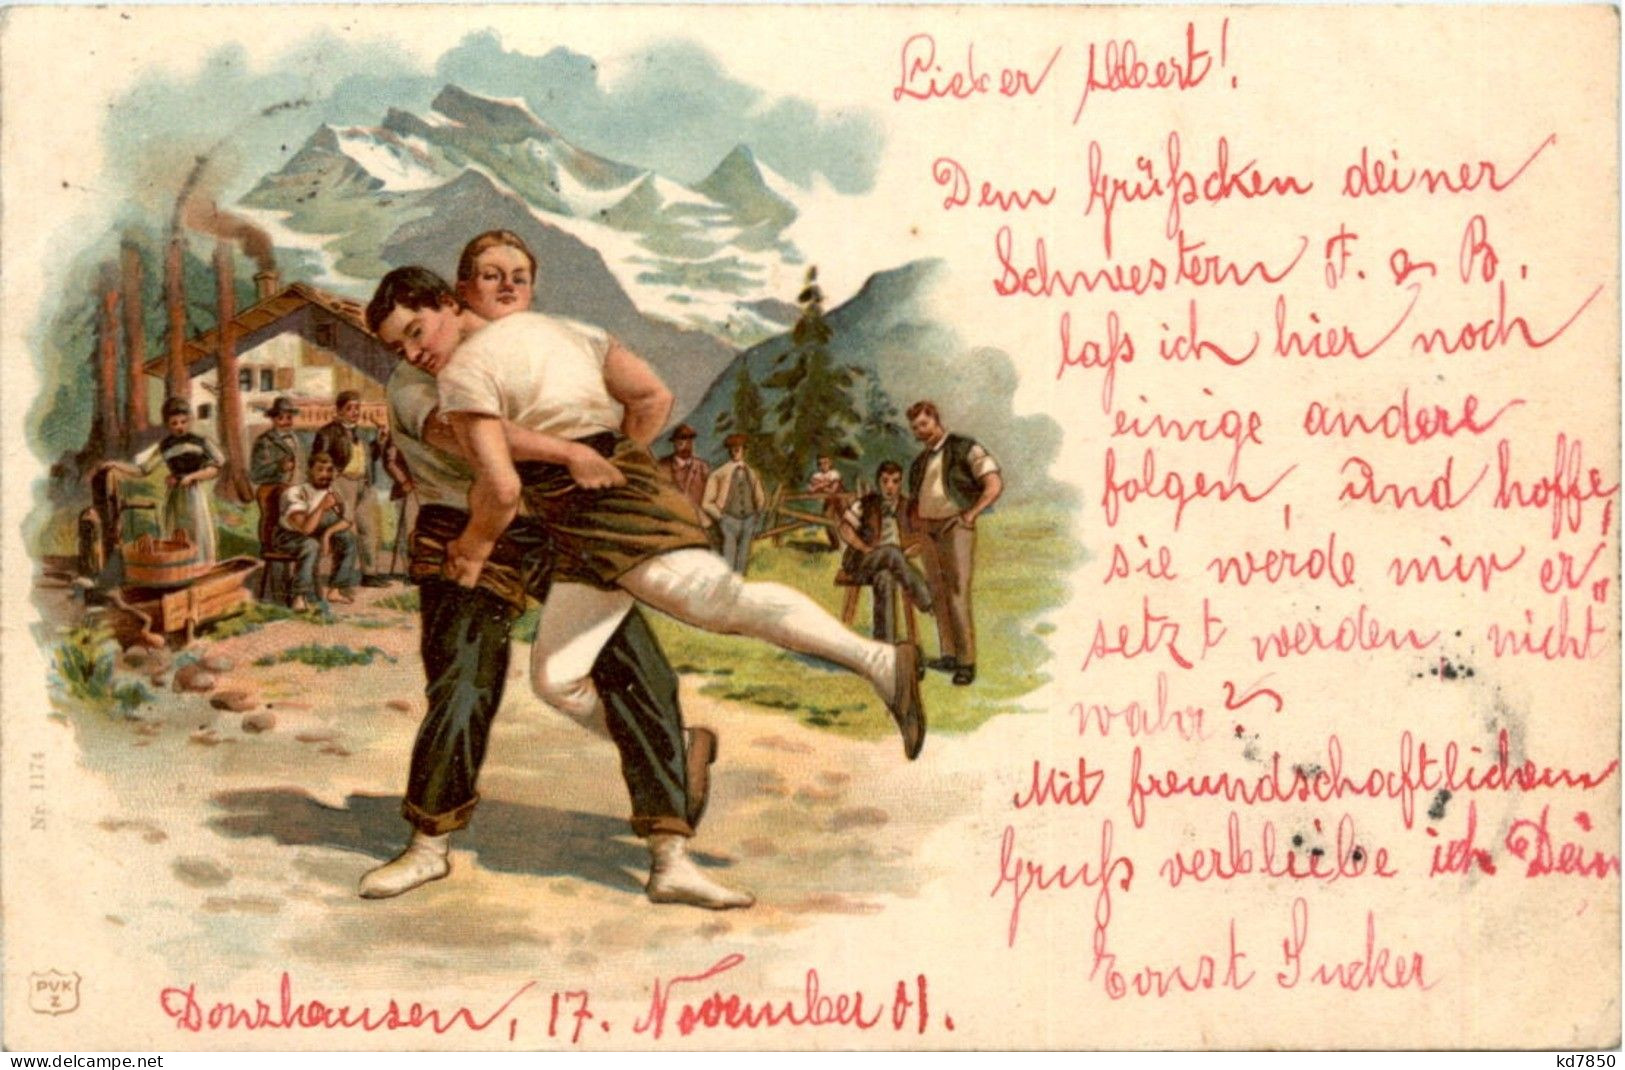 Lieber Albert!
Dem Grüßchen deiner
Schwestern F. & B.
laß ich hier noch
einige andere
folgen, und hoffe,
sie werde mir er„
setzt werden, nicht
wahr?
Mit freundschaftlichem
Gruß verbleibe ich Dein
Ernst
Donzhausen, 17. November 01.
Nr. 1174
PVK
Z
www.delcampe.net
kd7850